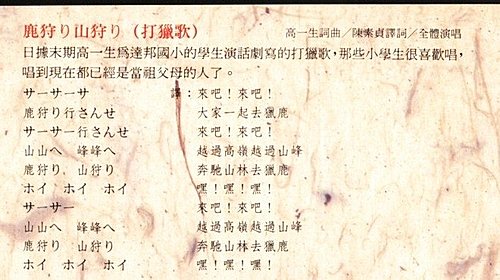 鹿狩り山狩り（打獵歌） 高一生詞曲／陳素貞譯詞／全體演唱
日據末期高一生爲達邦國小的學生演話劇寫的打獵歌，那些小學生很喜歡唱，
唱到現在都已經是當祖父母的人了。
サーサーサ 譯：來吧！來吧！
鹿狩り行さんせ 大家一起去獵鹿
サーサー行さんせ 來吧！來吧！
山山へ 峰峰へ 越過高嶺越過山峰
鹿狩り．山狩り 奔馳山林去獵鹿
ホイ ホイ ホイ 嘿！嘿！嘿！
サーサー 來吧！來吧！
山山へ 峰峰へ 越過高嶺越過山峰
鹿狩り 山狩り 奔馳山林去獵鹿
ホイ ホイ ホイ 嘿！嘿！嘿！